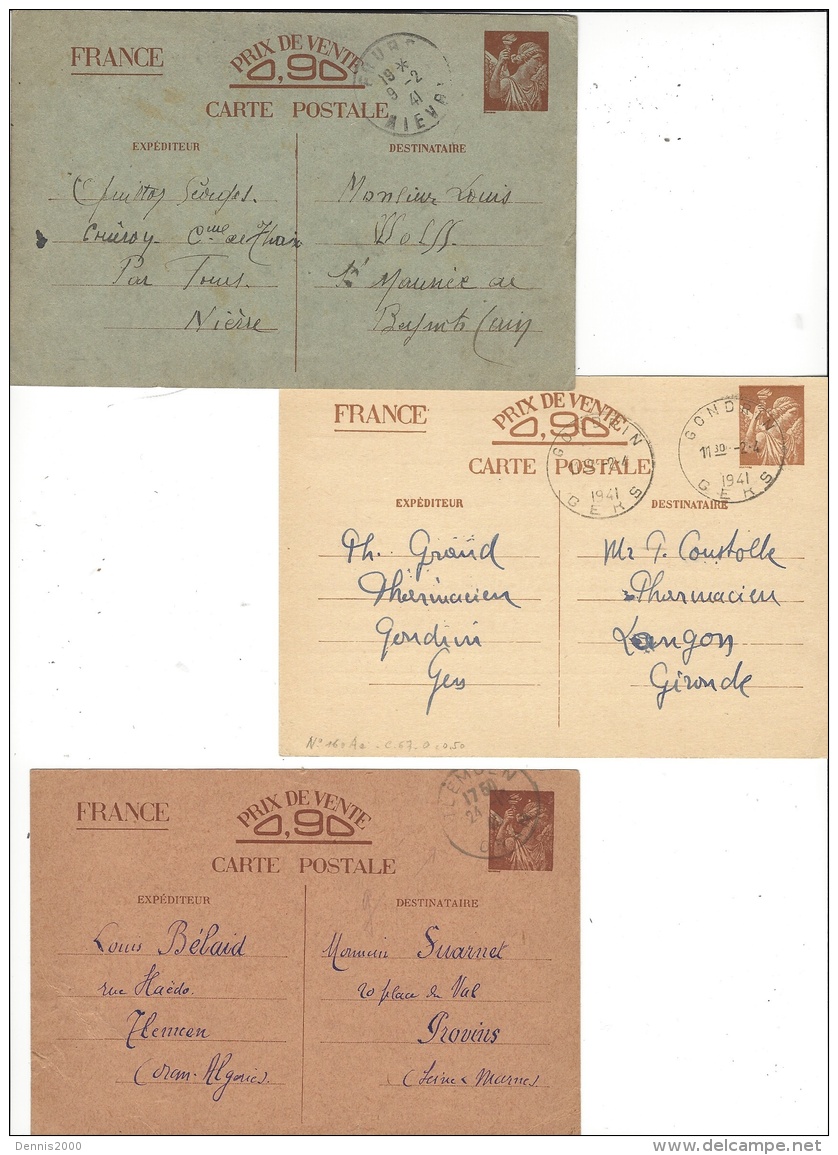 FRANCE
PRIX DE VENTE
0,90
CARTE POSTALE
19 *
9 -2
41
NIEVR
EXPÉDITEUR
DESTINATAIRE
Georges.
Cne de Thaix
Par Tours.
Nièvre
Monsieur Louis
Wolff.
St Maurice de
Beynost (ain)
FRANCE
PRIX DE VENTE
0,90
CARTE POSTALE
GONDRIN
-2-4
1941
GERS
GONDRIN
11 30 -2-4
1941
GERS
EXPÉDITEUR
DESTINATAIRE
Ph. Grand
Pharmacien
Gondrin
Gers
Mr T. Coustolle
Pharmacien
Langon
Gironde
FRANCE
PRIX DE VENTE
0,90
CARTE POSTALE
TLEMCEN
17 50
24
EXPÉDITEUR
DESTINATAIRE
Louis Bélaid
rue Haëdo.
Tlemcen
(Oran-Algérie).
Monsieur Suarnet
20 place du Val
Provins
(Seine & Marne)
Dennis2000
delcampe.net